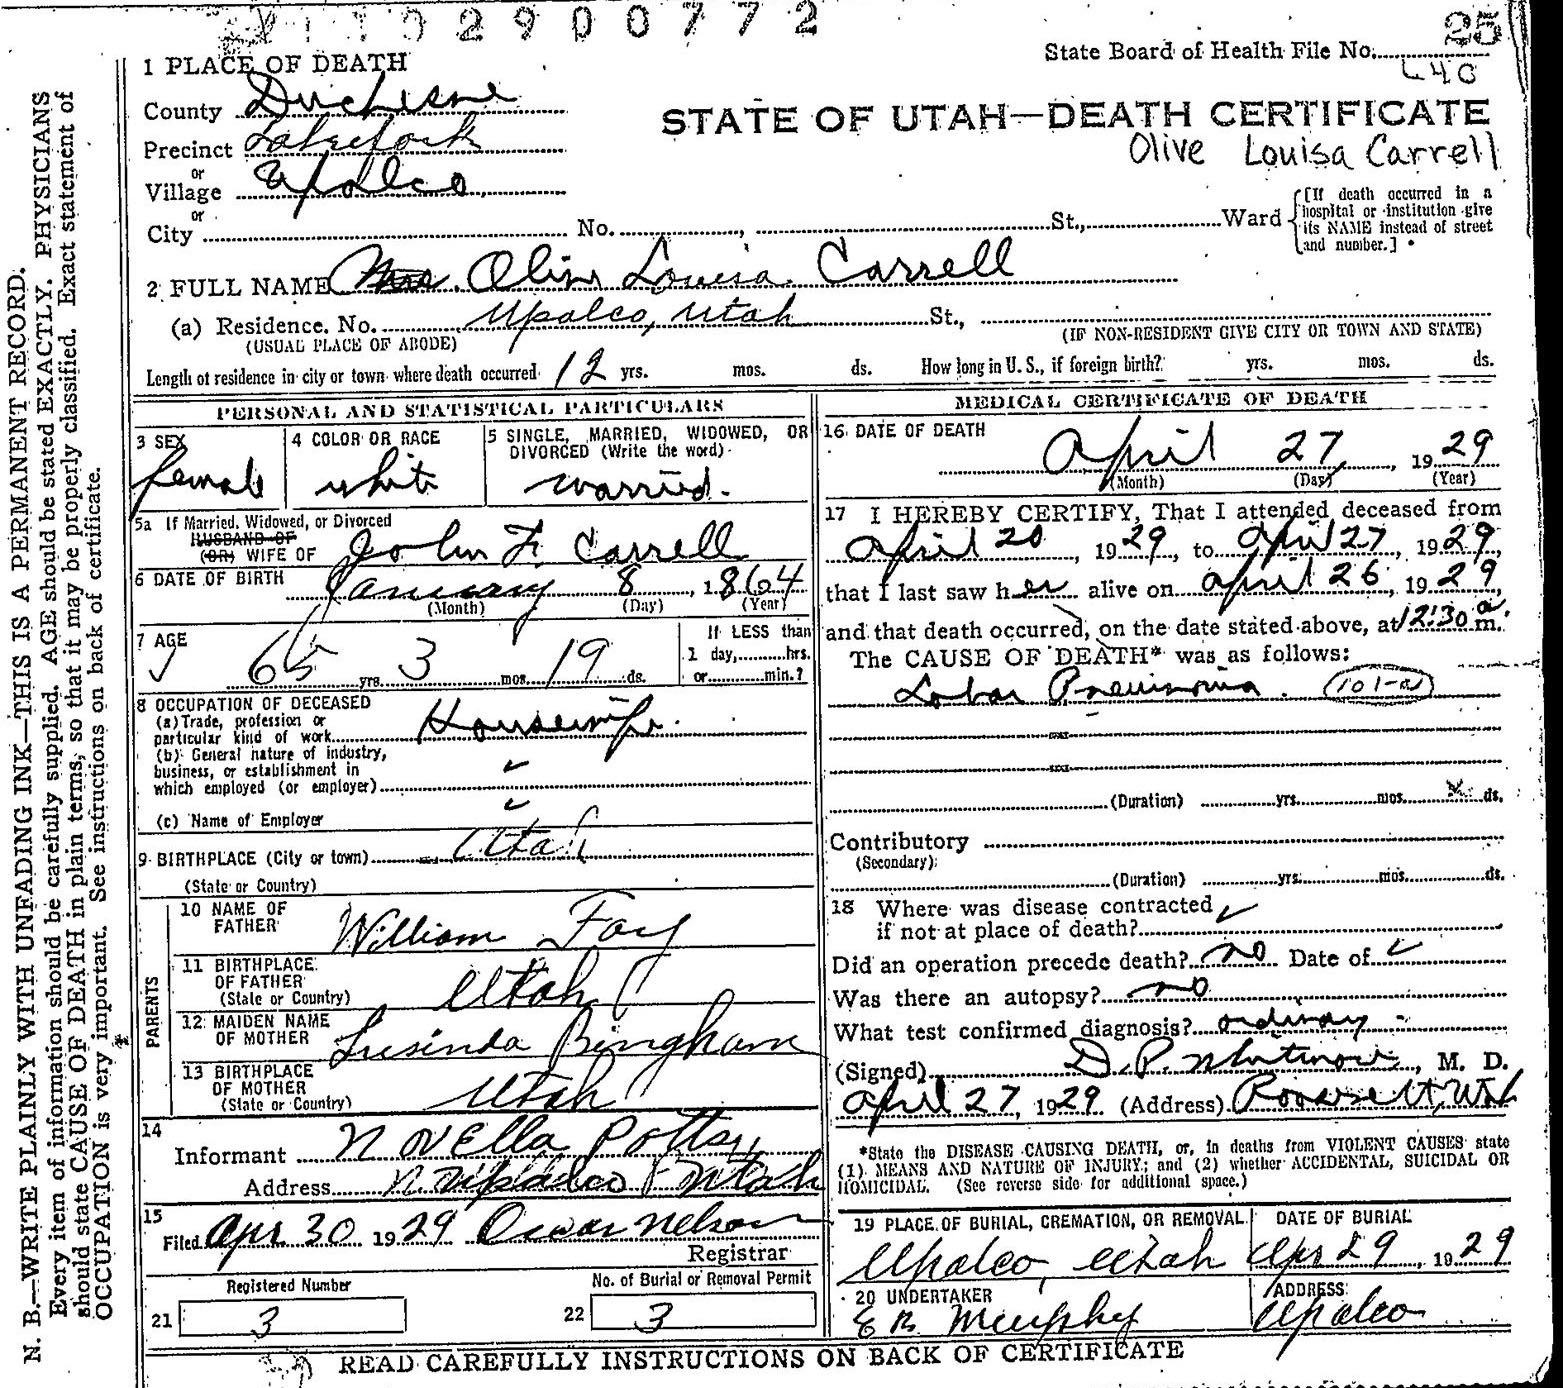 2900772
25
State Board of Health File No.
1 PLACE OF DEATH
County Duchesne
STATE OF UTAH—DEATH CERTIFICATE
Precinct Lakefork
Olive Louisa Carrell
or
Village Upalco
or
City No. , St., Ward
[If death occurred in a
hospital or institution give
its NAME instead of street
and number.]
2 FULL NAME Mrs. Olive Louisa Carrell
(a) Residence. No. Upalco, Utah St.,
(USUAL PLACE OF ABODE) (IF NON-RESIDENT GIVE CITY OR TOWN AND STATE)
Length of residence in city or town where death occurred 12 yrs. mos. ds. How long in U. S., if foreign birth? yrs. mos. ds.
PERSONAL AND STATISTICAL PARTICULARS
3 SEX 4 COLOR OR RACE 5 SINGLE, MARRIED, WIDOWED, OR
DIVORCED (Write the word)
female white married.
5a If Married, Widowed, or Divorced
HUSBAND OF
(OR) WIFE OF John F. Carrell
6 DATE OF BIRTH January 8, 1864
(Month) (Day) (Year)
7 AGE If LESS than
65 yrs. 3 mos. 19 ds. 1 day, hrs.
or min.?
8 OCCUPATION OF DECEASED
(a) Trade, profession or
particular kind of work Housewife.
(b) General nature of industry,
business, or establishment in
which employed (or employer)
(c) Name of Employer
9 BIRTHPLACE (City or town) Utah
(State or Country)
PARENTS
10 NAME OF
FATHER William Foy
11 BIRTHPLACE
OF FATHER Utah
(State or Country)
12 MAIDEN NAME
OF MOTHER Lusinda Bingham
13 BIRTHPLACE
OF MOTHER Utah
(State or Country)
14
Informant Novella Potts
Address Upalco Utah
15
Filed Apr 30 1929 Oscar Nelson
Registrar
Registered Number No. of Burial or Removal Permit
21 3 22 3
MEDICAL CERTIFICATE OF DEATH
16 DATE OF DEATH
April 27, 1929
(Month) (Day) (Year)
17 I HEREBY CERTIFY, That I attended deceased from
April 20, 1929, to April 27, 1929,
that I last saw her alive on April 26, 1929,
and that death occurred, on the date stated above, at 12:30 a. m.
The CAUSE OF DEATH* was as follows:
Lobar Pneumonia. 101-a
(Duration) yrs. mos. ds.
Contributory
(Secondary)
(Duration) yrs. mos. ds.
18 Where was disease contracted
if not at place of death?
Did an operation precede death? no Date of
Was there an autopsy? no
What test confirmed diagnosis? ordinary
(Signed) D. P. Whitmore, M. D.
April 27, 1929 (Address) Roosevelt, Utah
*State the DISEASE CAUSING DEATH, or, in deaths from VIOLENT CAUSES state
(1) MEANS AND NATURE OF INJURY; and (2) whether ACCIDENTAL, SUICIDAL OR
HOMICIDAL. (See reverse side for additional space.)
19 PLACE OF BURIAL, CREMATION, OR REMOVAL DATE OF BURIAL
Upalco, Utah Apr 29, 1929
20 UNDERTAKER ADDRESS
Murphy Upalco
READ CAREFULLY INSTRUCTIONS ON BACK OF CERTIFICATE
N. B.—WRITE PLAINLY WITH UNFADING INK—THIS IS A PERMANENT RECORD.
Every item of information should be carefully supplied. AGE should be stated EXACTLY. PHYSICIANS
should state CAUSE OF DEATH in plain terms, so that it may be properly classified. Exact statement of
OCCUPATION is very important. See instructions on back of certificate.